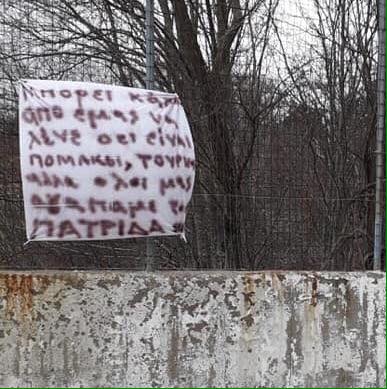 ΜΠΟΡΕΙ
ΑΠΟ ΕΜΑΣ ΝΑ
ΛΕΝΕ ΟΤΙ ΕΙΝΑΙ
ΠΟΜΑΚΟΙ, ΤΟΥΡΚΟΙ
ΑΛΛΑ ΟΛΟΙ ΜΑΣ
ΑΓΑΠΑΜΕ
ΠΑΤΡΙΔΑ